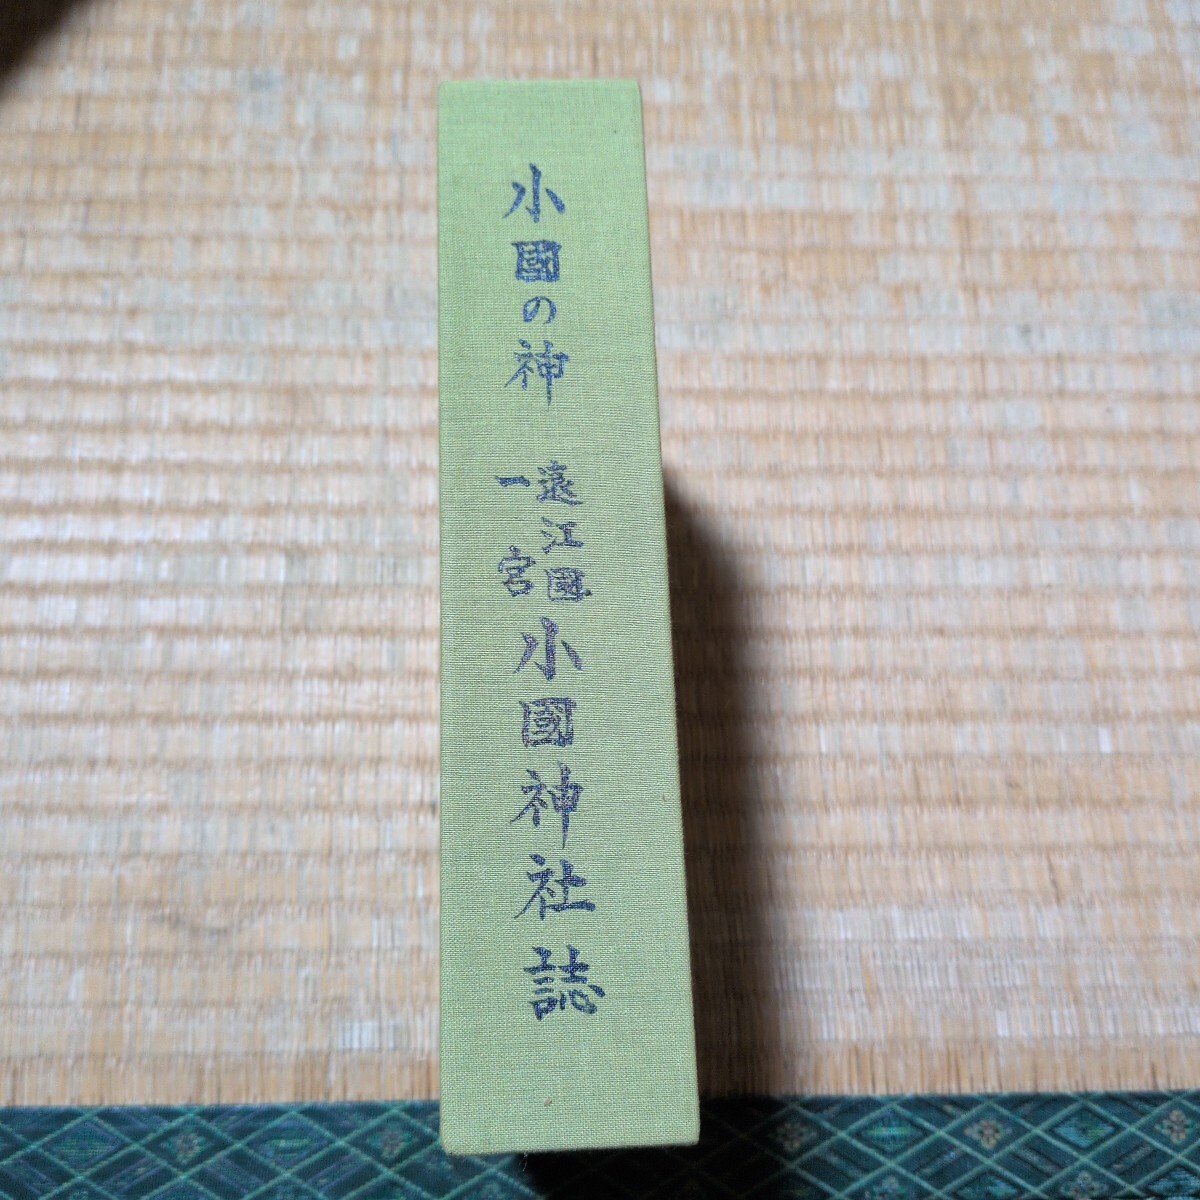 小國の神
遠江國
一宮
小國神社誌